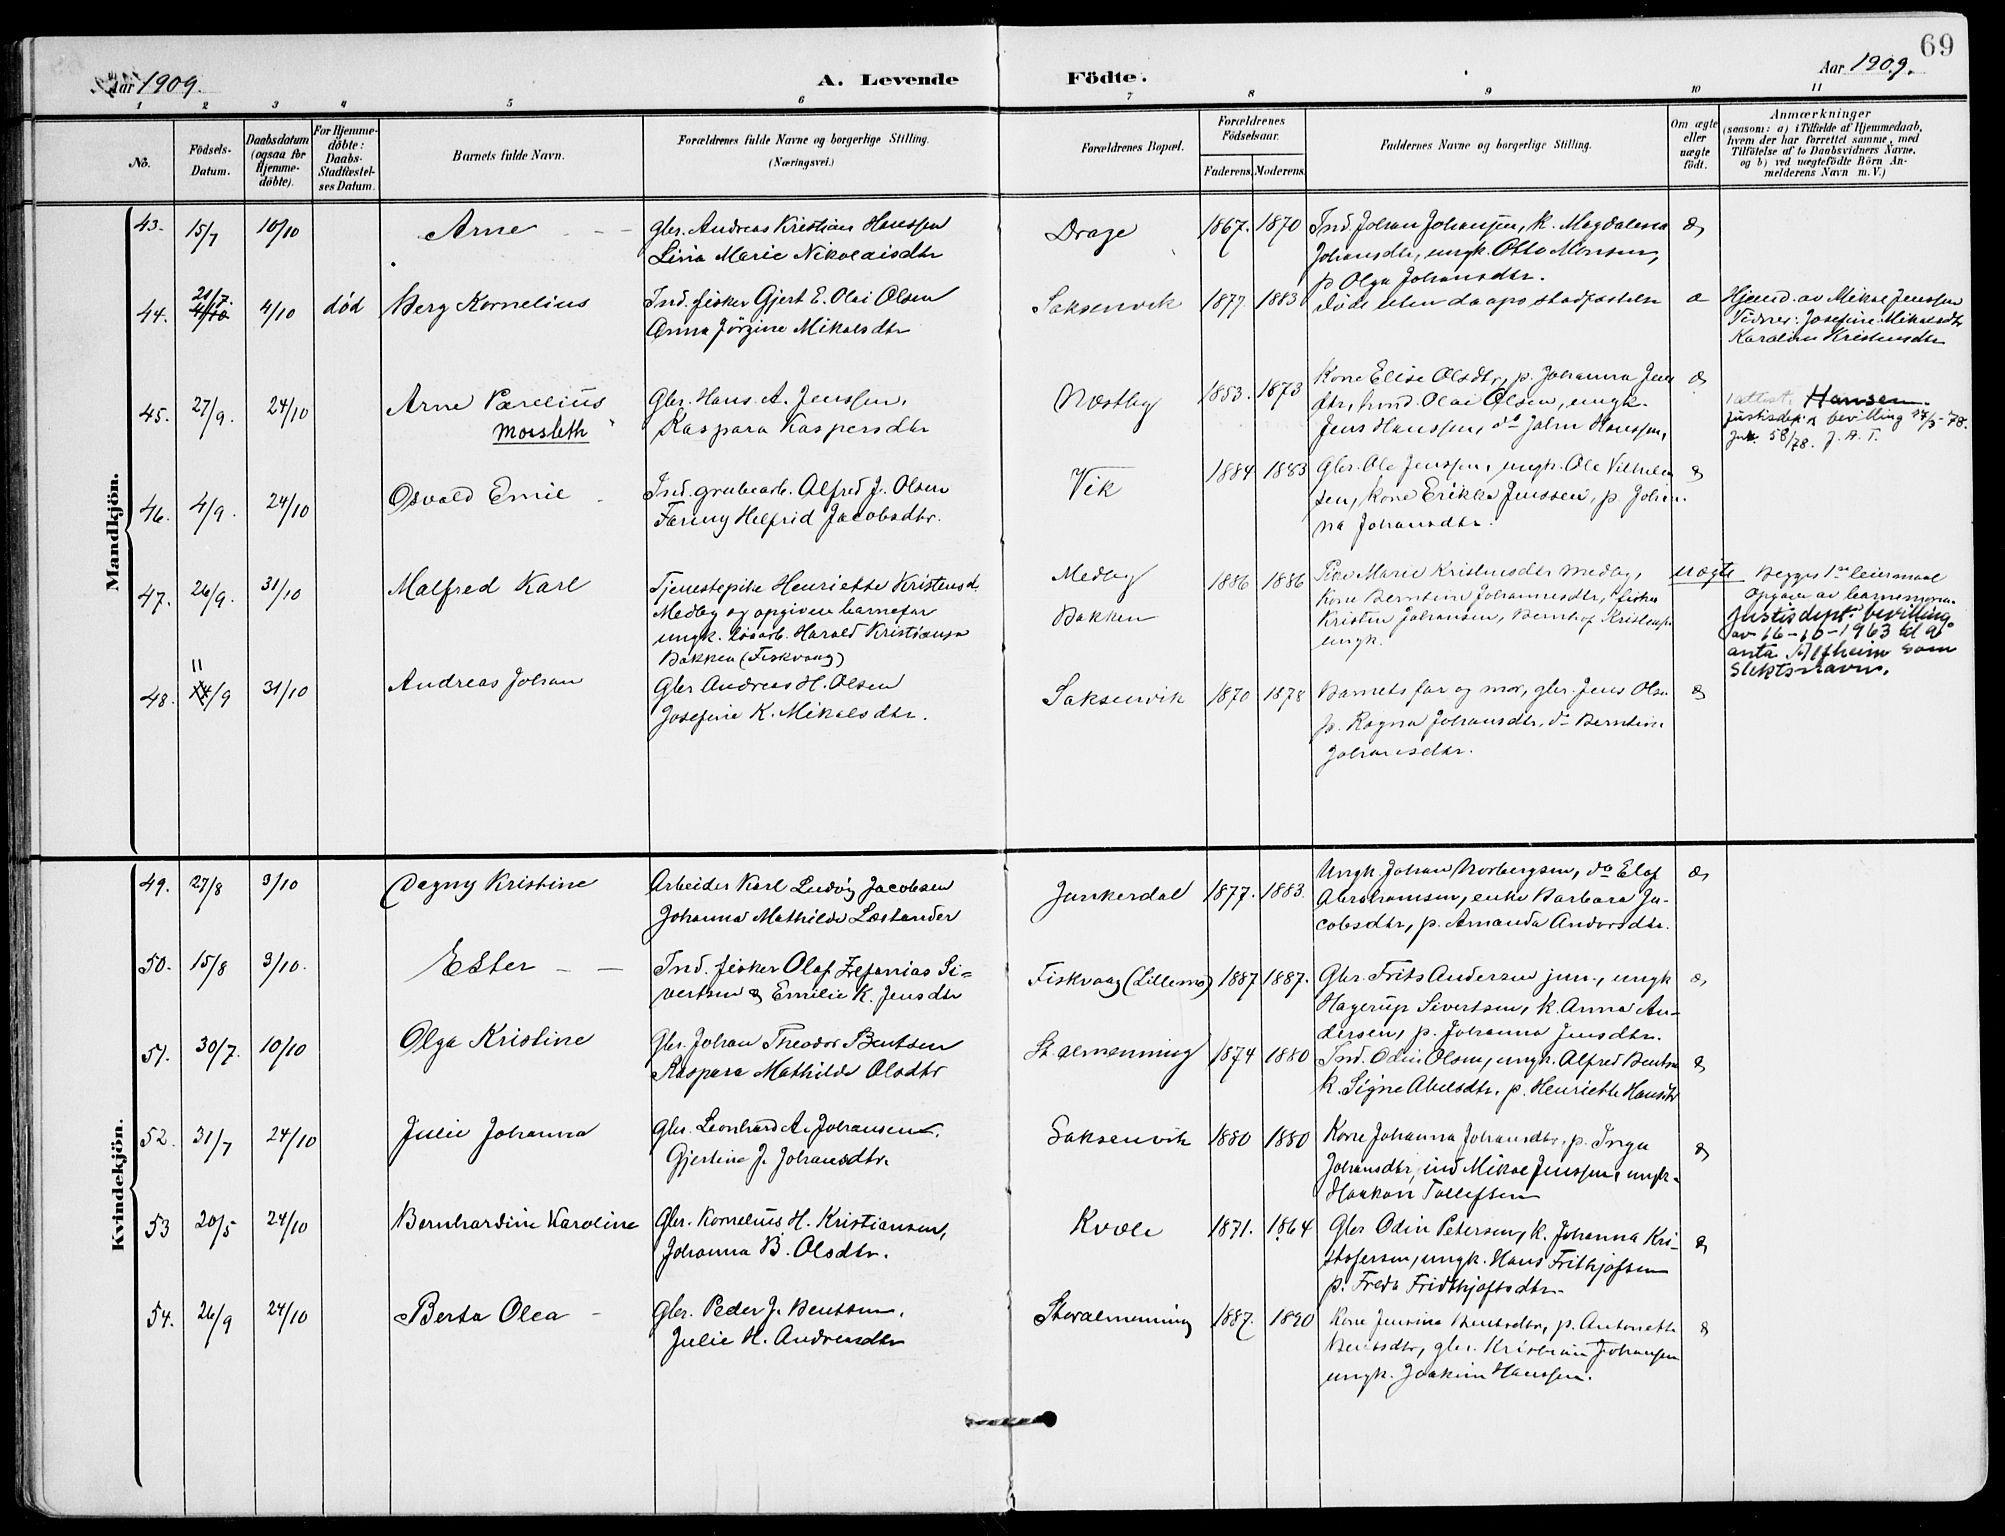 69
Aar 1909.
A. Levende
Födte.
Aar 1909.
1 2 3 4 5 6 7 8 9 10 11
No.
Födsels-
Datum.
Daabsdatum
(ogsaa for
Hjemme-
döbte).
For Hjemme-
döbte:
Daabs-
Stadfæstel-
ses Datum.
Barnets fulde Navn.
Forældrenes fulde Navne og borgerlige Stilling.
(Næringsvei.)
Forældrenes Bopæl.
Forældrenes
Födselsaar.
Faderens. Moderens.
Faddernes Navne og borgerlige Stilling.
Om ægte
eller
uægte
födt.
Anmærkninger
(saasom: a) i Tilfælde af Hjemmedaab,
hvem der har forrettet samme, med
Tilföielse af to Daabsvidners Navne,
og b) ved uægtefödte Börn An-
melderens Navn m. V.)
Mandkjön.
43. 15/7 10/10 Arne
Gbr. Andreas Kristian Hanssen
Lina Marie Nikolaisdtr
Drage 1867. 1870
Ind. Johan Johansen, k. Magdalena
Johansdtr, ungk. Otto Monsen,
p. Olga Johansdtr.
44. 21/7. 4/10 4/10 død Berg Kornelius
Ind. fisker Gjert E. Olai Olsen
Anna Jörgine Mikalsdtr
Saksenvik 1877. 1883
døde uten daaps stadfæstelse
Hjemd. av Mikal Jenssen
Vidner: Josefine Mikalsdtr
Karoline Kristensdtr
45. 27/9. 24/10 Arne Parelius
Morsleth
Gbr. Hans A. Jenssen,
Kaspara Kaspersdtr
Næstby 1853. 1873
Kone Elise Olsdtr, p. Johanna Jens
dtr, ind. Olai Olsen, ungk.
Jens Hanssen, do John Hanssen,
Hansen.
Justisdep.s bevilling 14/3-78.
Jnr. 58/78. J. A. T.
46. 4/9. 24/10 Osvald Emil
Ind. grubearb. Alfred J. Olsen
Fanny Helfrid Jacobsdtr.
Vik 1884 1883
Gbr. Ole Jenssen, ungk. Ole Vilhelm
sen, kone Erikka Jenssen, p. Johan-
na Johansdtr.
47. 26/9. 31/10 Malfred Karl
Tjenestepike Henriette Kristensd.
Medby og opgiven barnefar
ungk. løsarb. Harald Kristiansen
Bakken (Fiskvaag)
Medby
Bakken
1886 1886
Pike Marie Kristensdtr Medby,
Kone Berntine Johannesdtr, fisker
Kristen Johansen, Bernhof Kristensen
ungk.
uægte
Begges 1ste leiermaal
Opgave av barnemoren.
Justisdept.s bevilling
av 16-10-1963 til å
anta Alfheim som
slektsnavn.
48. 11 14/9 31/10 Andreas Johan
Gbr Andreas H. Olsen
Josefine K. Mikalsdtr.
Saksenvik 1870 1878
Barnets far og mor, gbr. Jens Olsen
p. Ragna Johansdtr, do Berntine
Johansdtr.
Kvindekjön.
49. 27/8 3/10 Dagny Kristine
Arbeider Karl Ludvig Jacobsen
Johanna Mathilde Læstander
Junkerdal 1877. 1883.
Ungk. Johan Norbergsen, do Elof
Abrahamsen, enke Barbara Ja-
cobsdtr, p. Amanda Andorsdtr.
50. 15/8 3/10. Ester
Ind. fisker Olaf Zefanias Si-
vertsen & Emilie K. Jensdtr
Fiskvaag (Lillemo) 1887 1887.
Gbr. Frits Andersen jun., ungk
Hagerup Sivertsen, k. Anna An-
dersen, p. Johanna Jensdtr.
51. 30/7. 10/10 Olga Kristine
Gbr. Johan Theodor Bentsen
Kaspara Mathilde Olsdtr
St. almenning 1874 1880
Ind. Odin Olsen, ungk. Alfred Bentsen
k. Signe Abelsdtr, p. Henriette Hansdtr
52. 31/7 24/10 Julie Johanna
Gbr. Leonhard A. Johansen,
Gjertine J. Johansdtr.
Saksenvik 1880 1880
Kone Johanna Johansdtr, p. Inga
Johansdtr, ind Mikal Jenssen, ungk.
Haakon Tollefsen
53 20/5 24/10 Bernhardine Karoline
Gbr. Kornelius H. Kristiansen,
Johanna B. Olsdtr.
Kvæle 1871. 1864
Gbr Odin Petersen, k. Johanna Kri-
stofersen, ungk. Hans Frithjofsen
p. Freda Fridthjofsdtr.
54. 26/9 24/10 Berta Olea
Gbr. Peder J. Bentsen,
Julie H. Andreasdtr
Storalmenning 1887. 1890
Kone Jensina Bentsdtr, p. Antonette
Bentsdtr, gbr. Kristian Johansen
ungk. Joakim Hanssen.